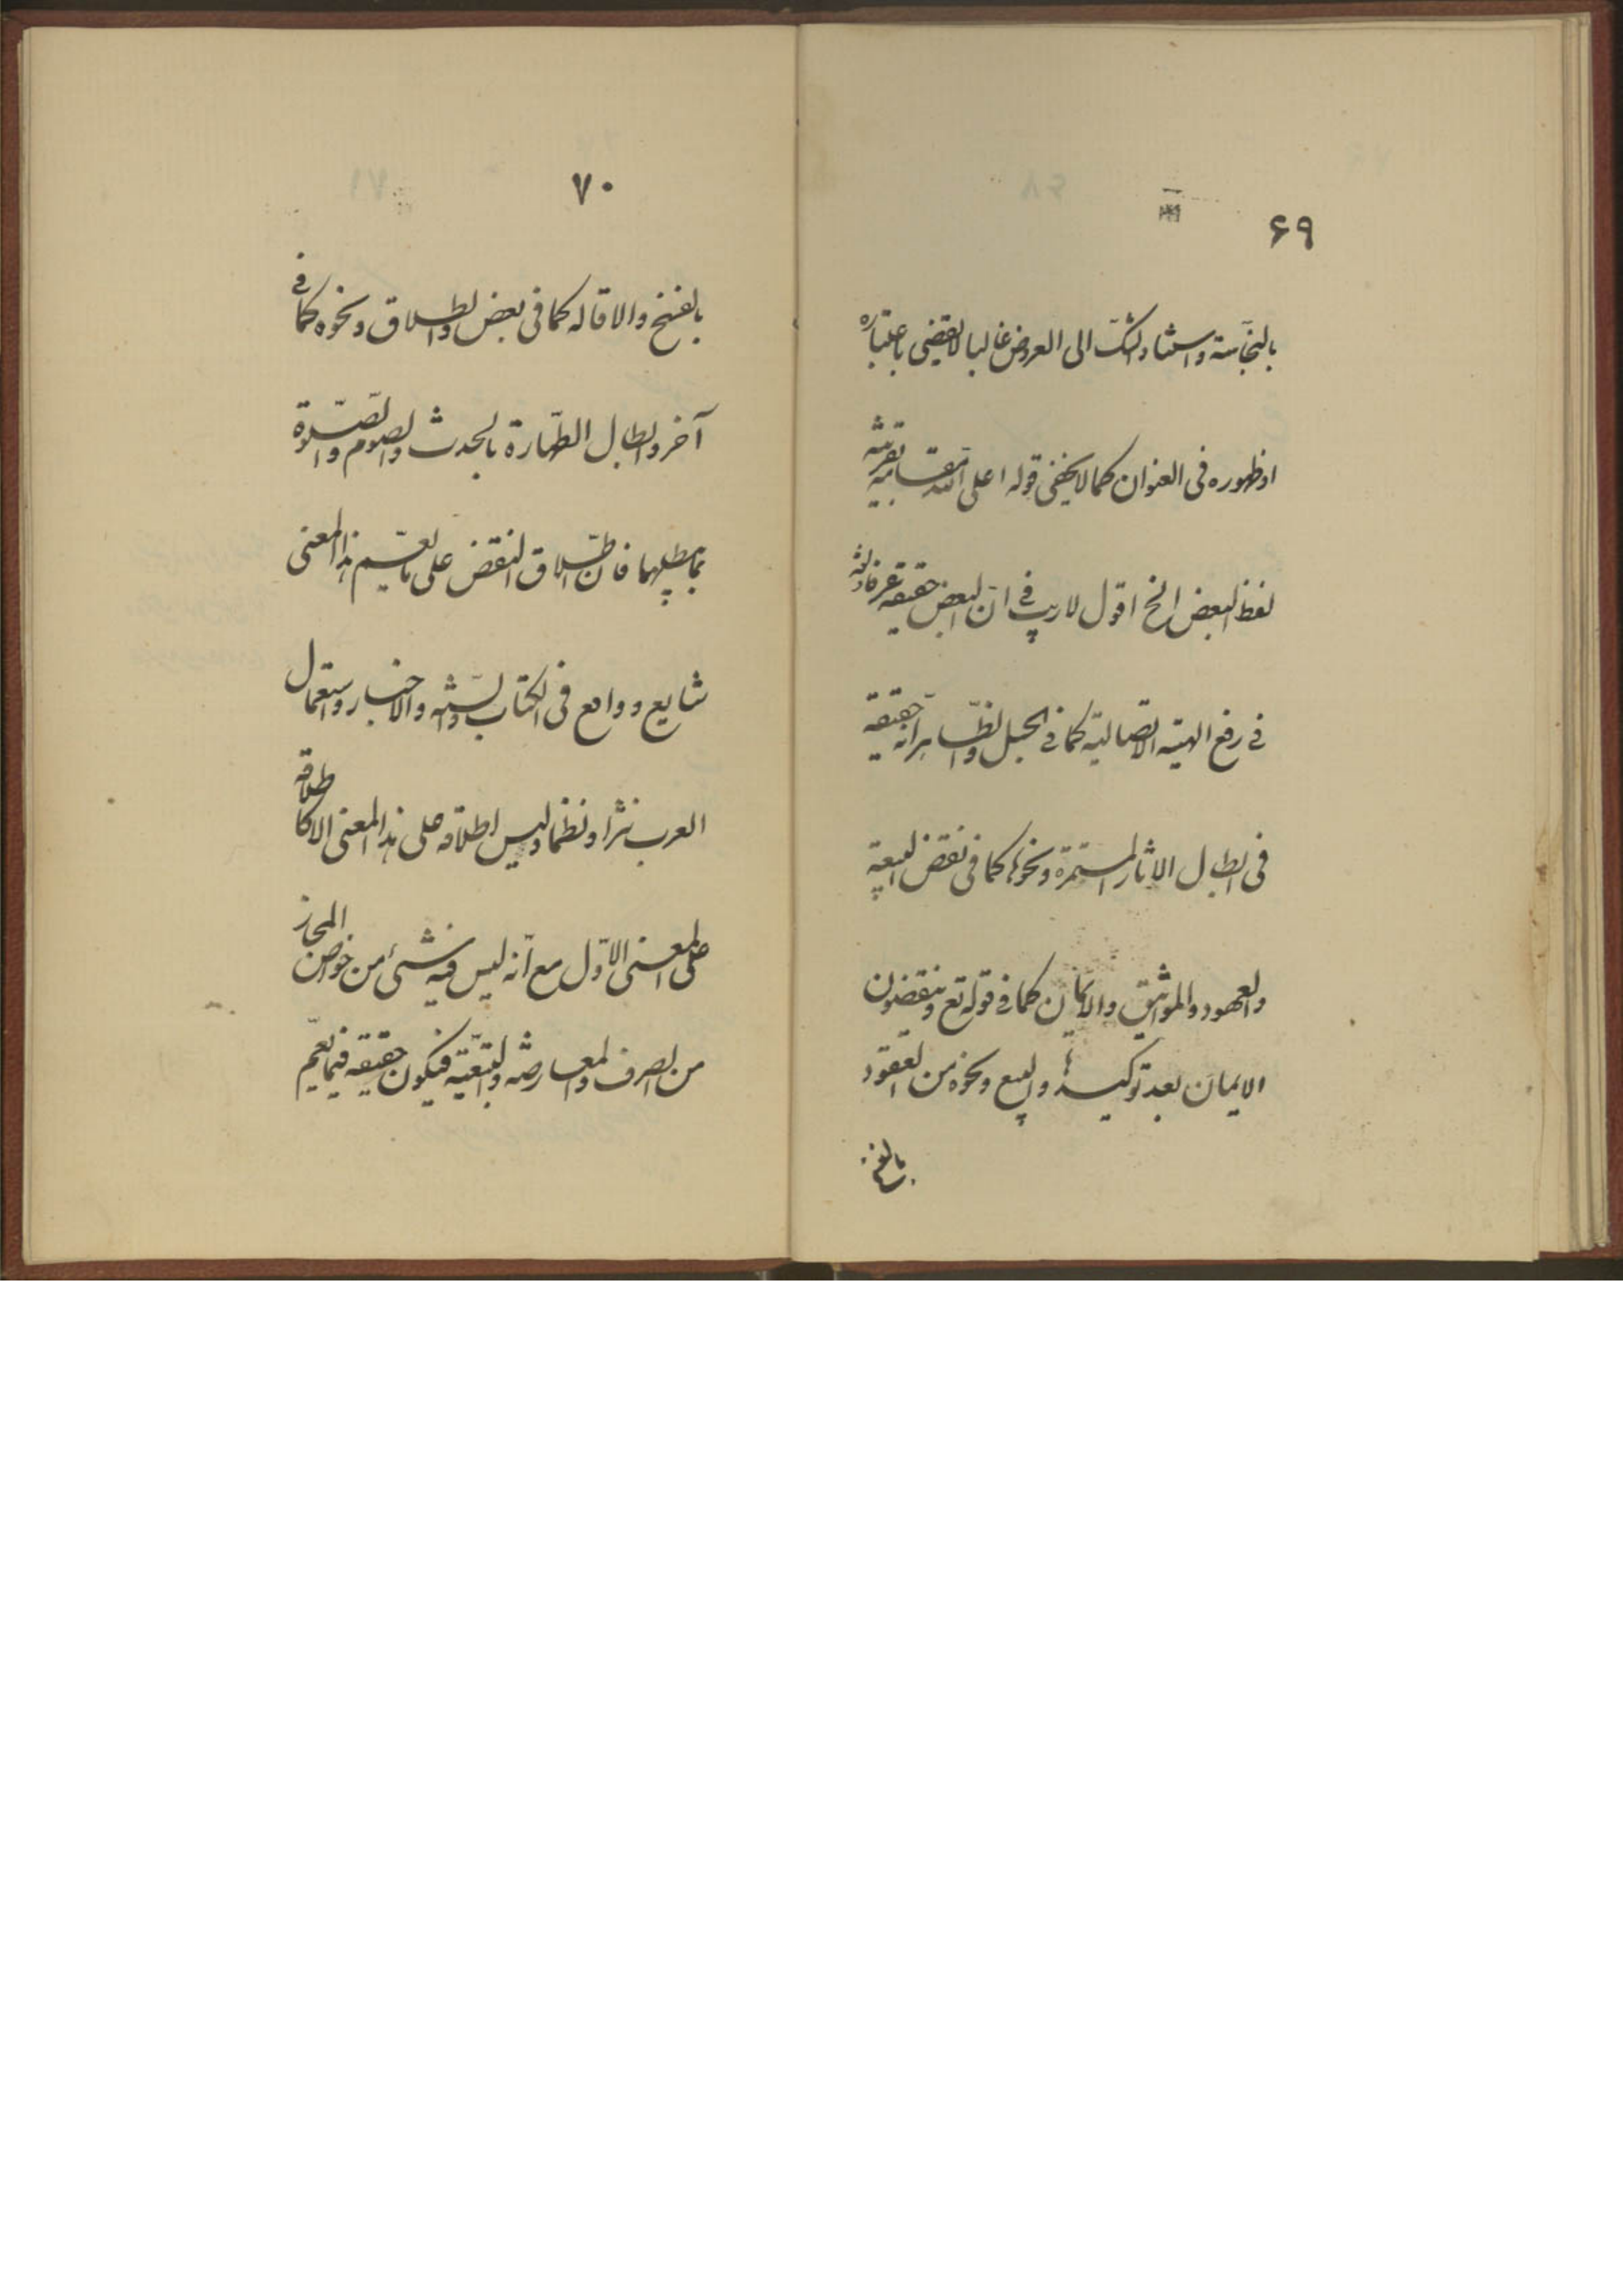 ۶۹
بالنجاسة واستناد الشك الى العروض غالبا لا يقتضى باعتباره
او ظهوره فى العنوان كما لا يخفى قوله اعلى الله مقامه بقرينة
لفظ البعض الخ اقول لا ريب فى ان النقض حقيقة عرفا ولغة
فى رفع الهيئة الاتصالية كما فى الحبل والظاهر انه حقيقة
فى ابطال الاثار المستمرة ونحوها كما فى نقض البيعة
والعهود والمواثيق والايمان كما فى قوله تع وينقضون
الايمان بعد توكيدها والبيع ونحوه من العقود
بالفسخ
۷۰
بالفسخ والاقاله كما فى بعض والطلاق ونحوه كما فى
آخر وابطال الطهارة بالحدث والصوم والصلوة
بما يبطلهما فان اطلاق النقض على ما يعم هذا المعنى
شايع وواقع فى الكتاب والسنة والاخبار واستعمال
العرب نثرا ونظما وليس اطلاقه على هذا المعنى الا كاطلاقه
على المعنى الاول مع انه ليس فيه شئ من خواص المجاز
من الصرف والمعارضة والتبعية فيكون حقيقة فيما يعم